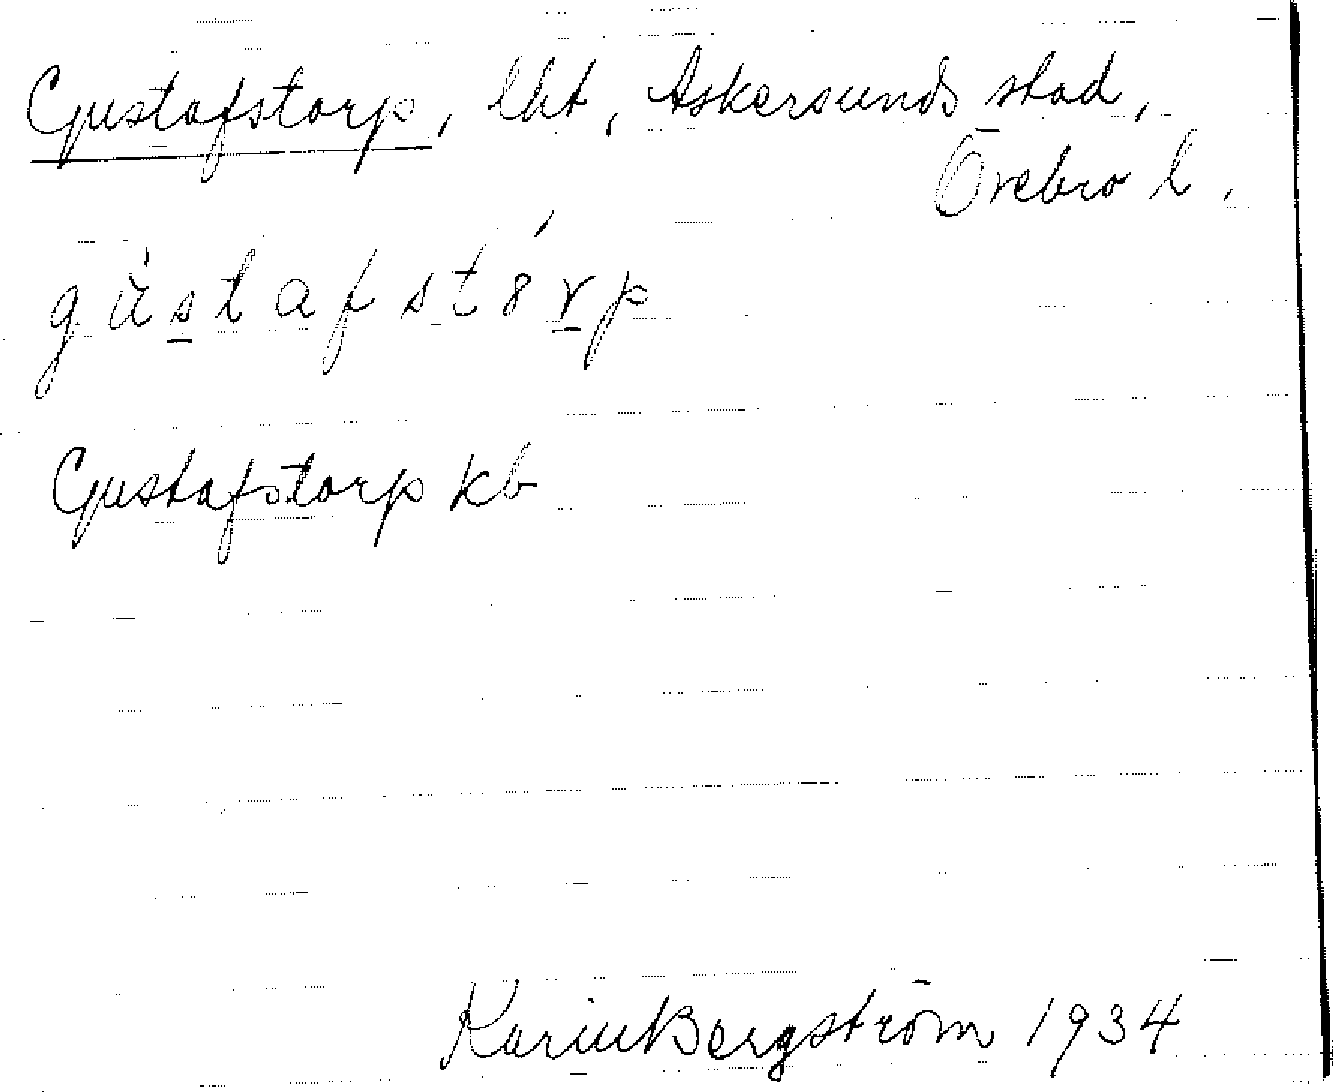 Gustafstorp, lht, Askersunds stad,
Örebro l.
gùstafstó̀rp
Gustafstorp kb
Karin Bergström 1934